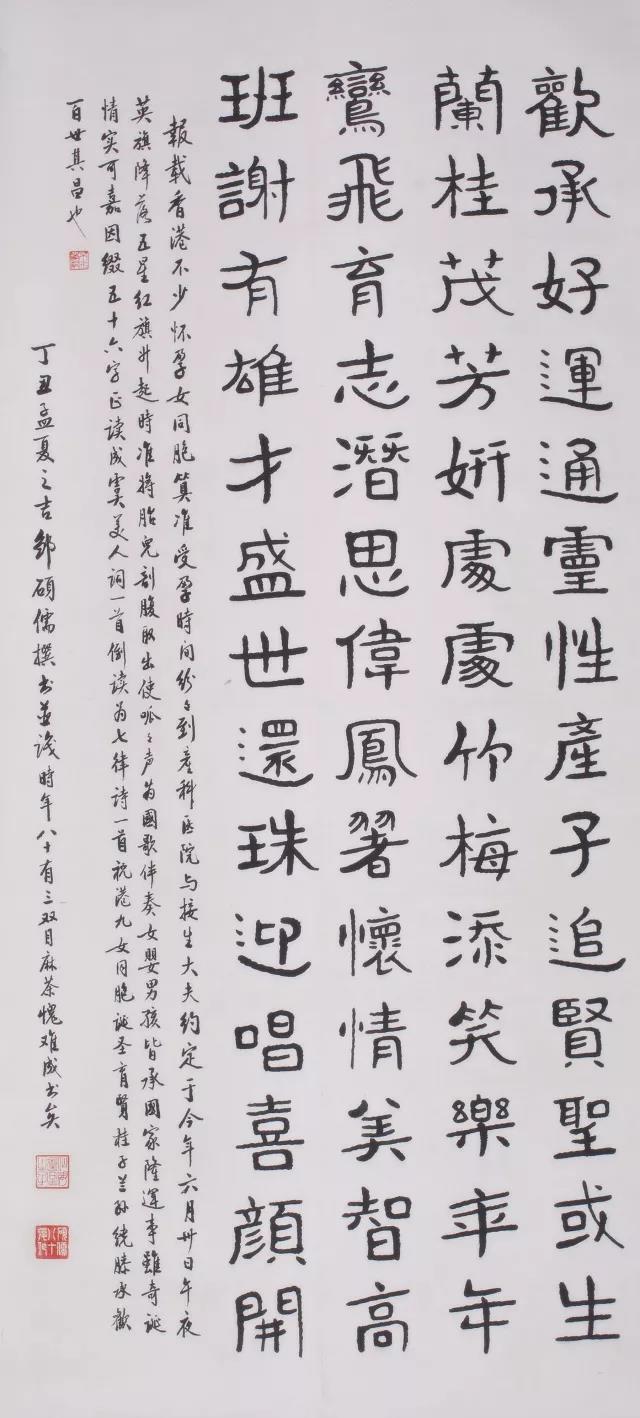 歡承好運通靈性產子追賢聖或生
蘭桂茂芳妍處處竹梅添笑樂年年
鸞飛育志潛思偉鳳翥懷情美智高
班謝有雄才盛世還珠迎唱喜顏開
報載香港不少怀孕女同胞算准受孕時间纷纷到産科医院与接生大夫约定于今年六月卅日午夜
英旗降落五星红旗升起時准将胎兒剖腹取出使呱呱声为國歌伴奏女嬰男孩皆承國家隆運事雖奇誕
情实可嘉因綴五十六字正读成虞美人词一首倒读为七律诗一首祝港九女同胞诞圣育賢桂子兰孙绕膝承歡
百世其昌也
丁丑孟夏之吉邹硕儒撰书並識時年八十有三双目麻茶愧难成书矣